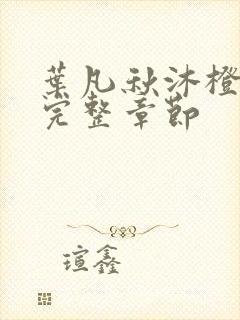 葉凡秋沐橙
完整章節
瑄鑫